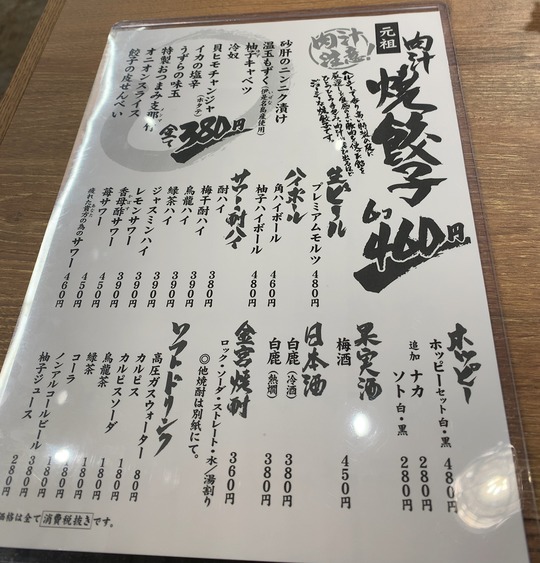 元祖
肉汁焼餃子
6コ 460円
肉汁注意!
砂肝のニンニク漬け
温玉もずく(伊是名島産使用)
柚子キャベツ
冷奴
貝ヒモチャンジャ(ホタテ)
イカの塩辛
うずらの味玉
特製おつまみ支那竹
オニオンスライス
餃子の皮せんべい
全て380円
生ビール
プレミアムモルツ 480円
ハイボール
角ハイボール 460円
柚子ハイボール 480円
サワー・酎ハイ
酎ハイ 380円
梅干酎ハイ 390円
烏龍ハイ 390円
緑茶ハイ 390円
ジャスミンハイ 390円
レモンサワー 390円
香母酢サワー 450円
苺サワー 450円
疲れた貴方の為のサワー 460円
ホッピー
ホッピーセット 白・黒 480円
追加 ナカ 280円
ソト 白・黒 280円
果実酒
梅酒 450円
日本酒
白鹿(冷酒) 380円
白鹿(熱燗) 380円
金宮焼酎
ロック・ソーダ・ストレート・水/湯割り 360円
◎他焼酎は別紙にて。
ソフトドリンク
高圧ガスウォーター 80円
カルピス 180円
カルピスソーダ 180円
烏龍茶 180円
緑茶 180円
コーラ 180円
ノンアルコールビール 380円
柚子ジュース 280円
価格は全て消費税抜きです。